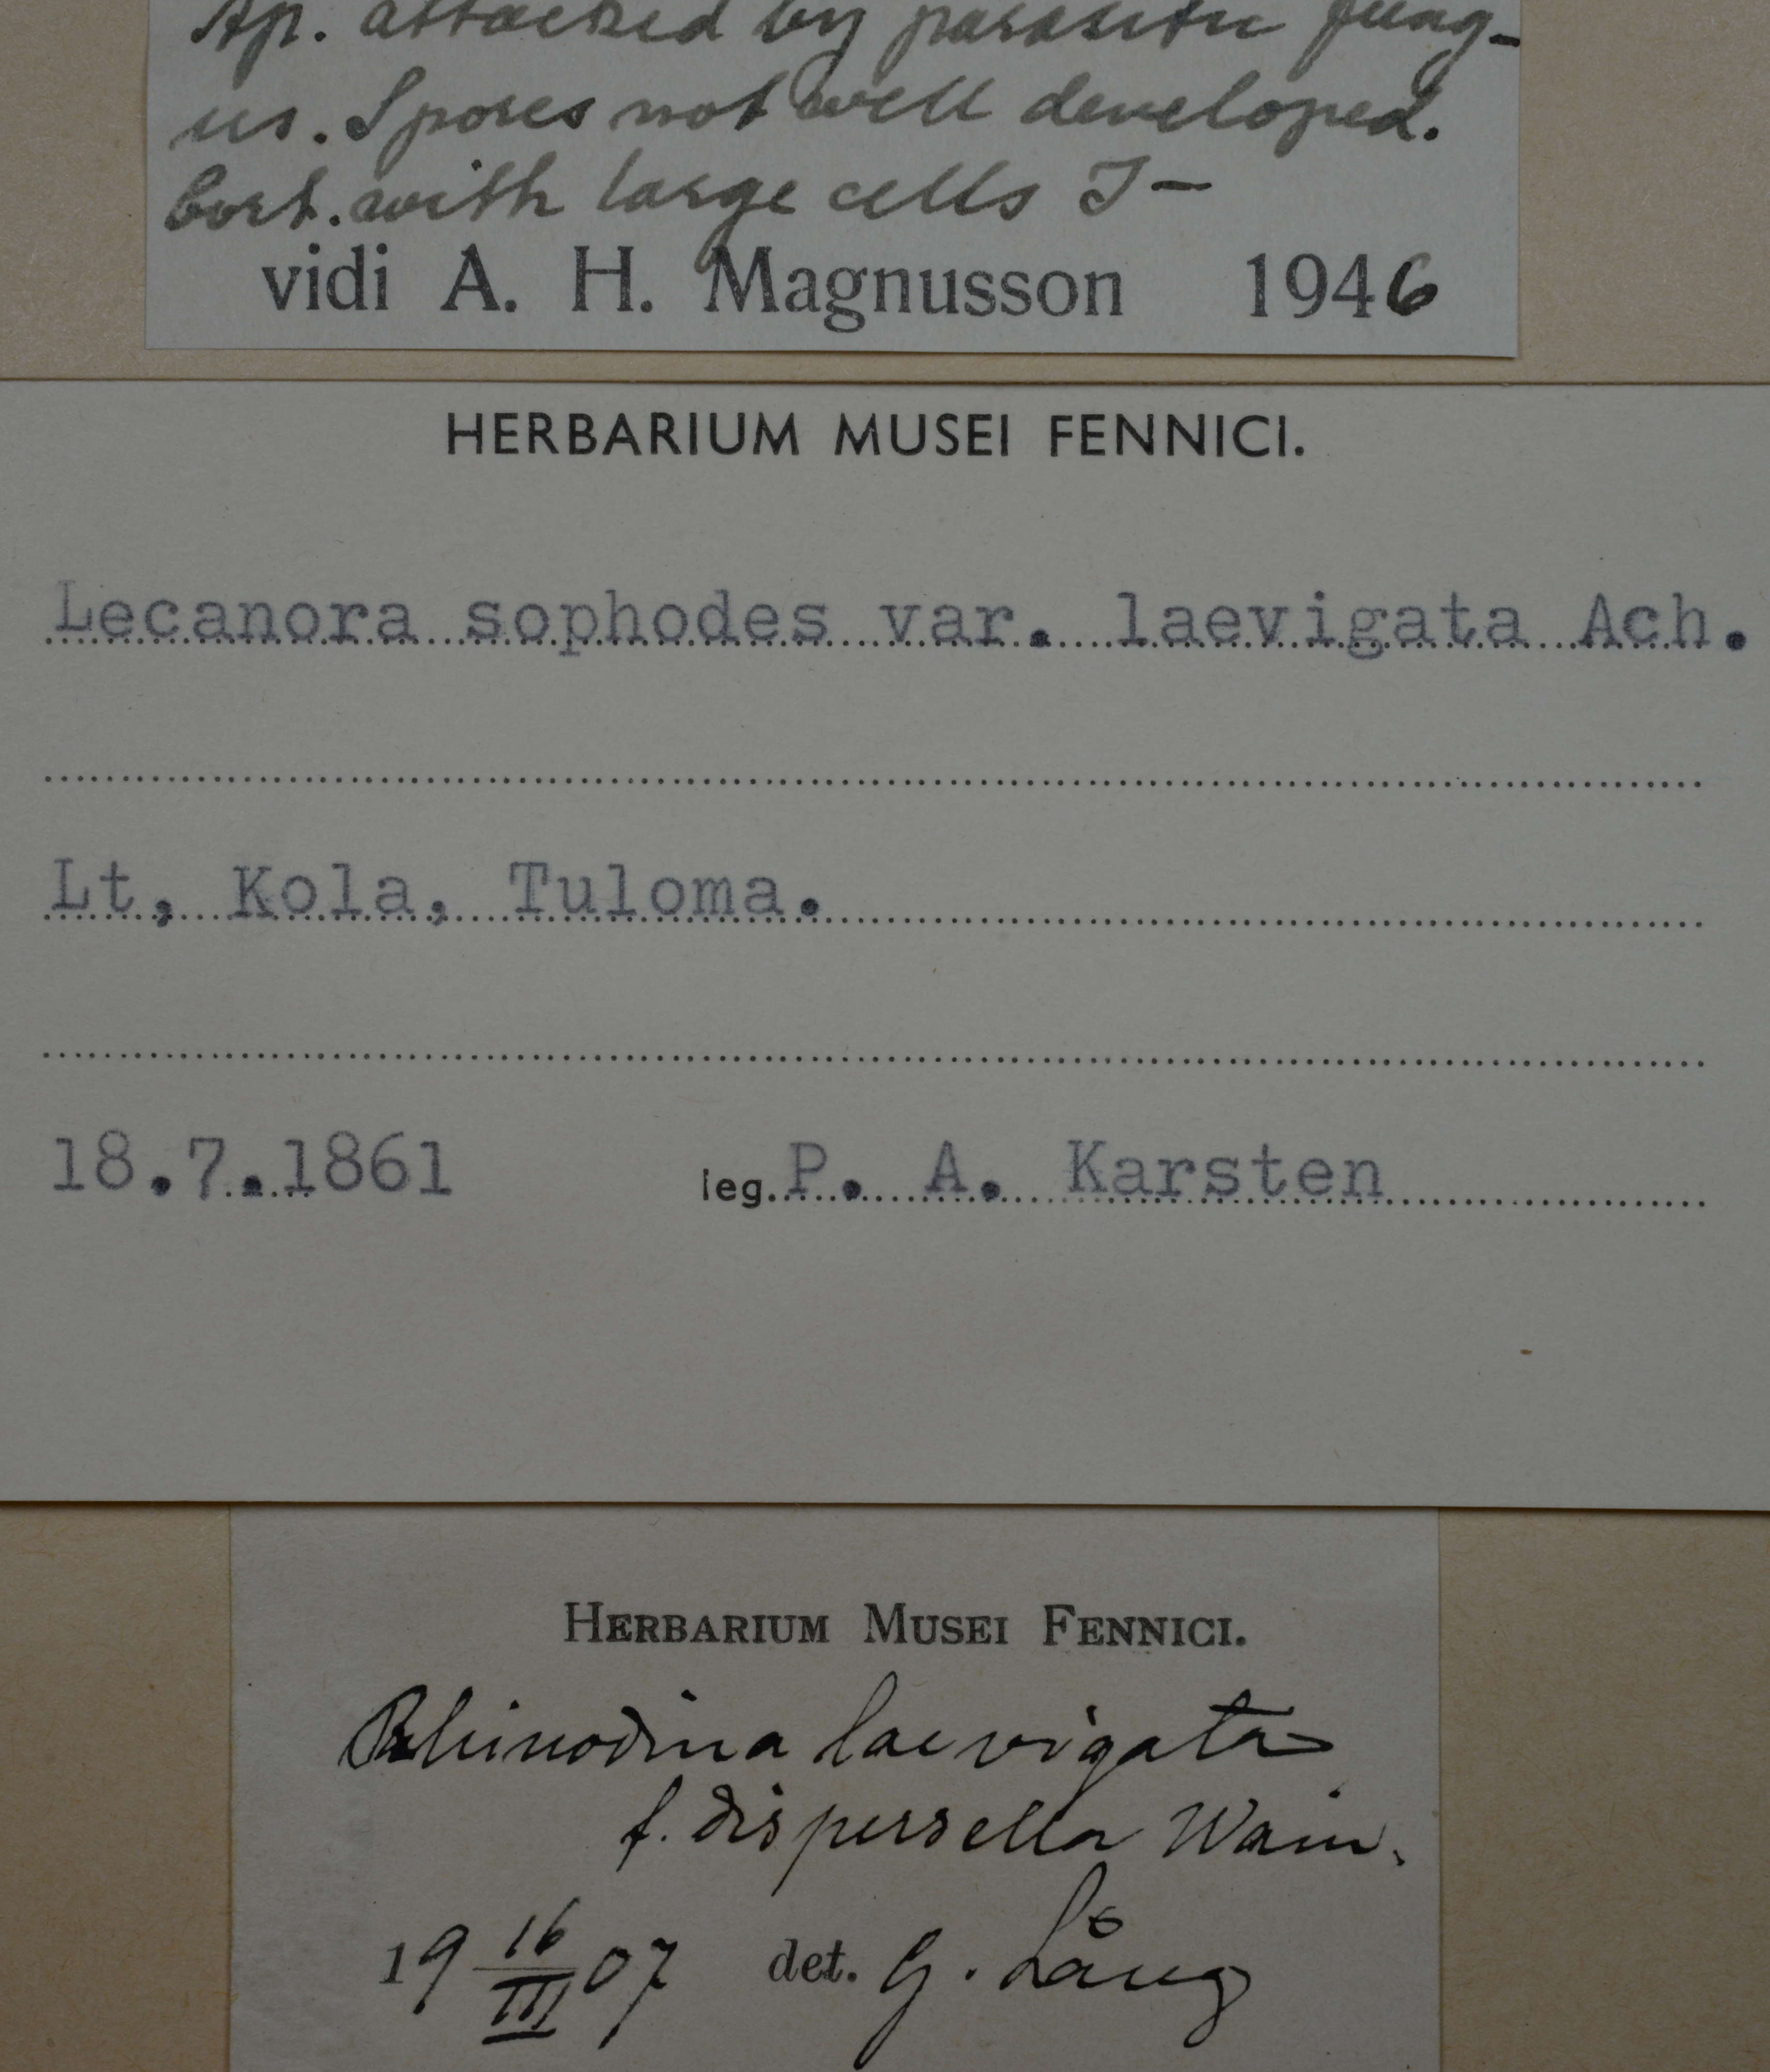 Ap. attacked by parasitic fung-
us. Spores not well developed.
Cort. with large cells I—
vidi A. H. Magnusson 1946
HERBARIUM MUSEI FENNICI.
Lecanora sophodes var. laevigata Ach.
Lt, Kola, Tuloma.
18.7.1861 leg. P. A. Karsten
HERBARIUM MUSEI FENNICI.
Rhinodina laevigata
f. dispersella Wain.
19 16/III 07 det. G. Lång